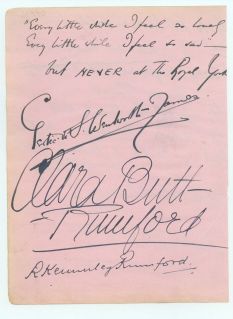 "Every little while I feel so lonely
Every little while I feel so sad —
but NEVER at the Royal York
Gertie S. Wentworth-James
Clara Butt-
Rumford
R. Kennerley Rumford.